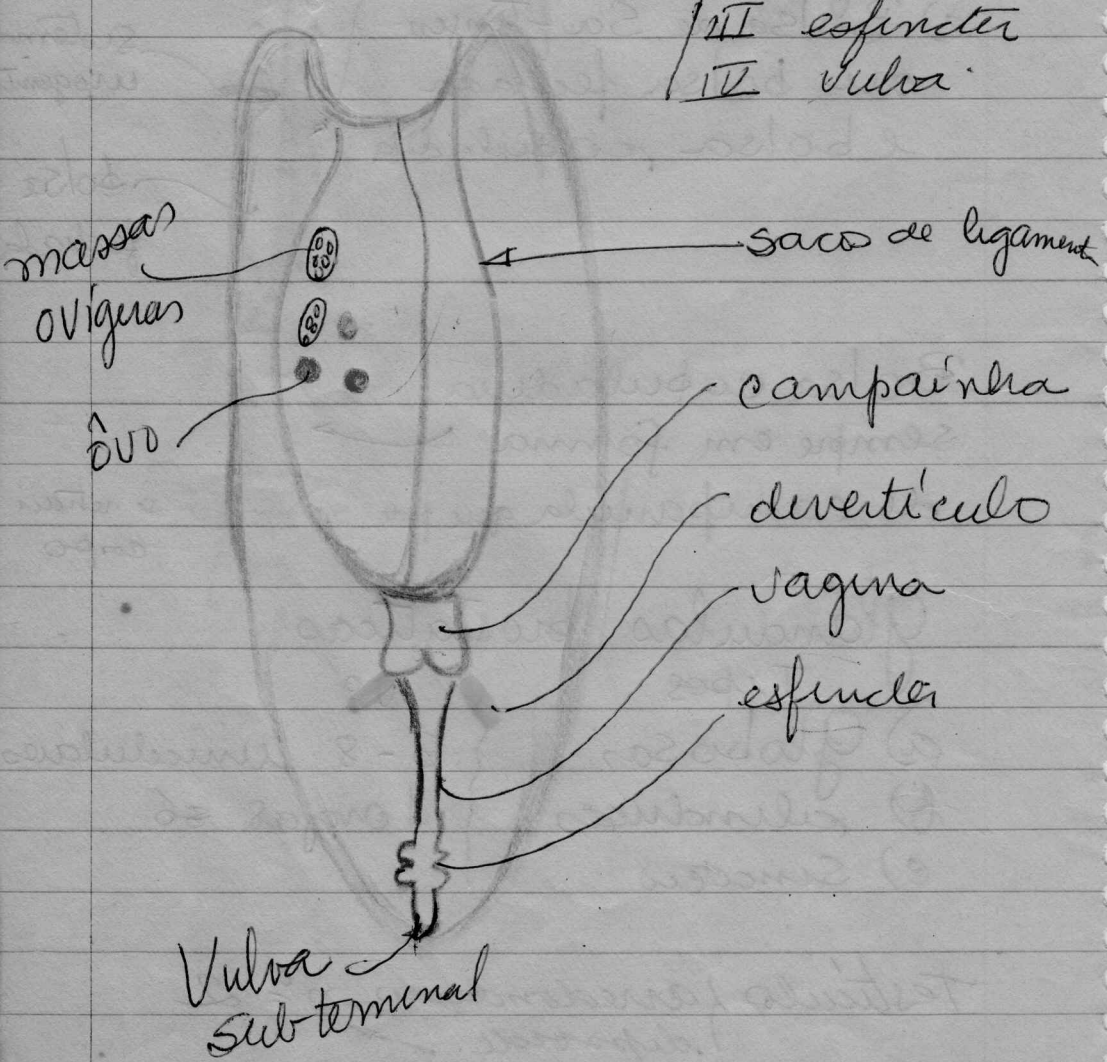 III esfincter
IV vulva
massas
ovígeras
saco de ligamento
campaínha
ôvo
divertículo
vagina
esfincter
Vulva
sub-terminal